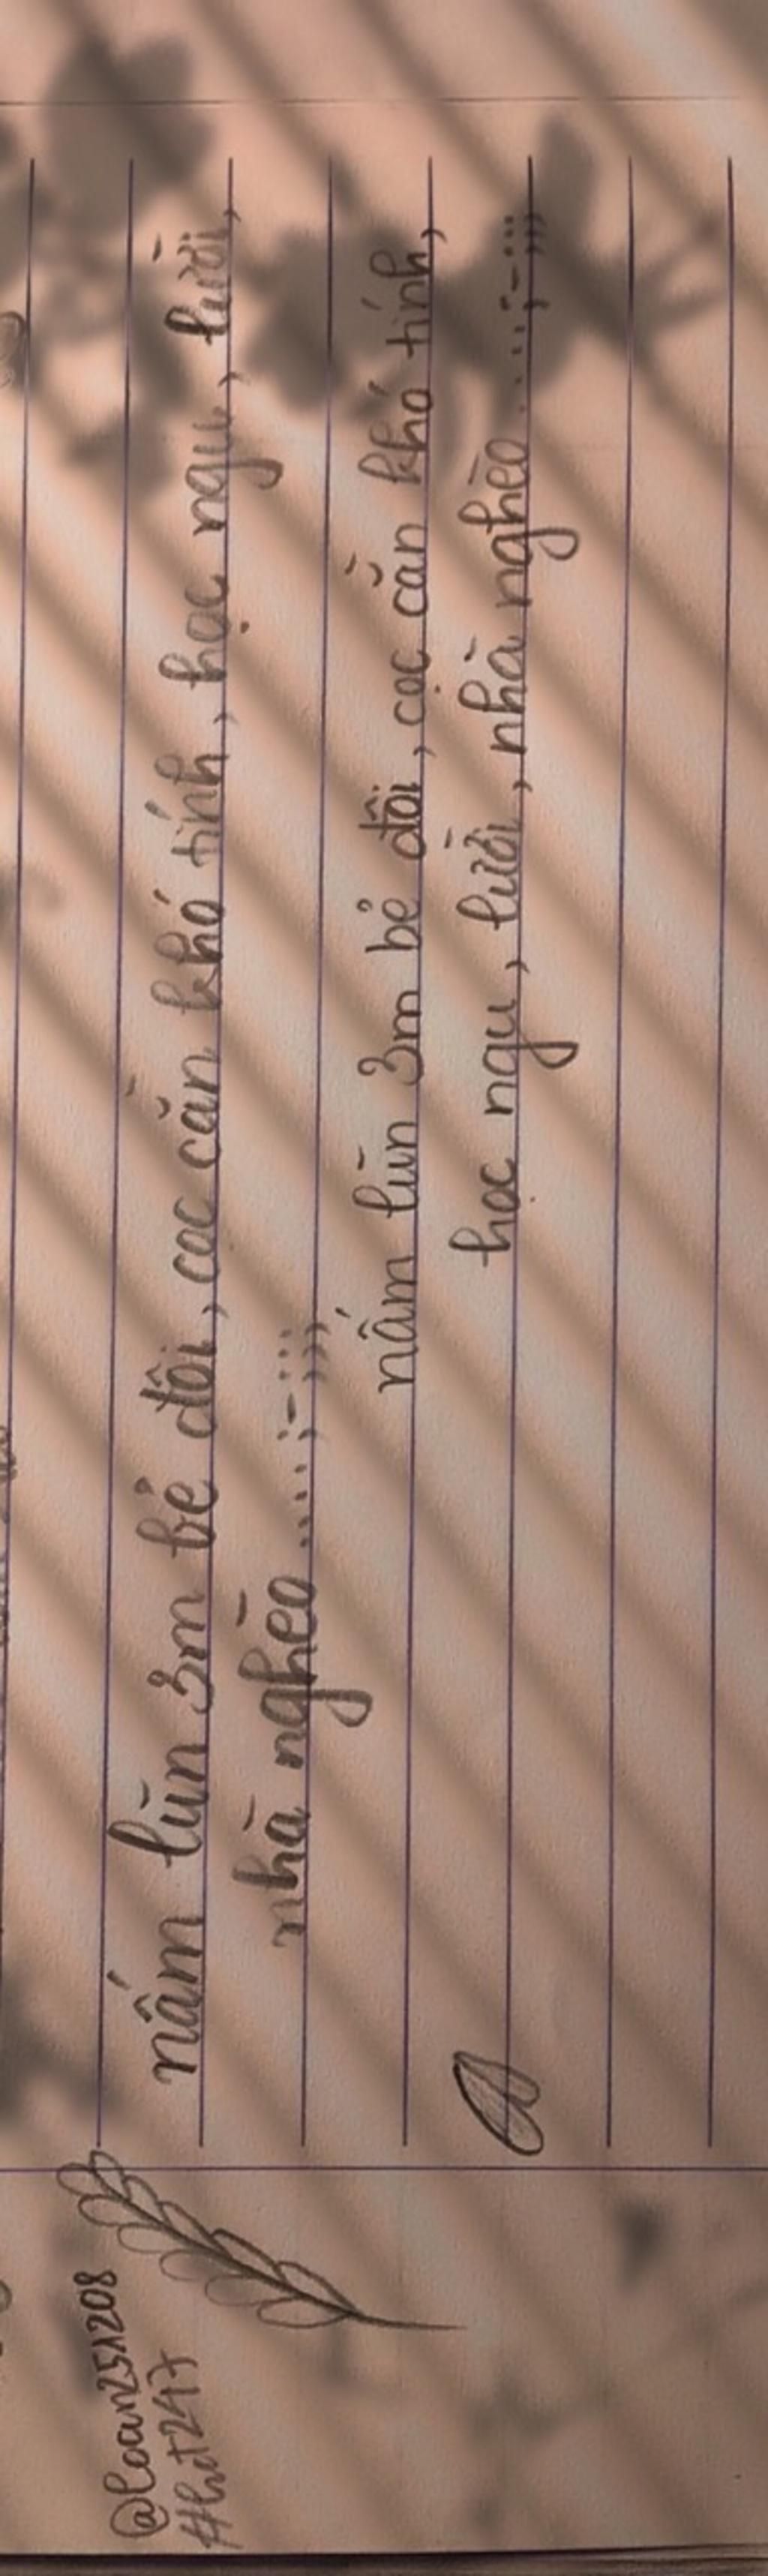 @loan251208
#hot247
nấm lùn 3m bẻ đôi, cọc cằn khó tính, học ngu, lười,
nhà nghèo.....;-;;;
nấm lùn 3m bẻ đôi, cọc cằn khó tính,
học ngu, lười, nhà nghèo.....;-;;;